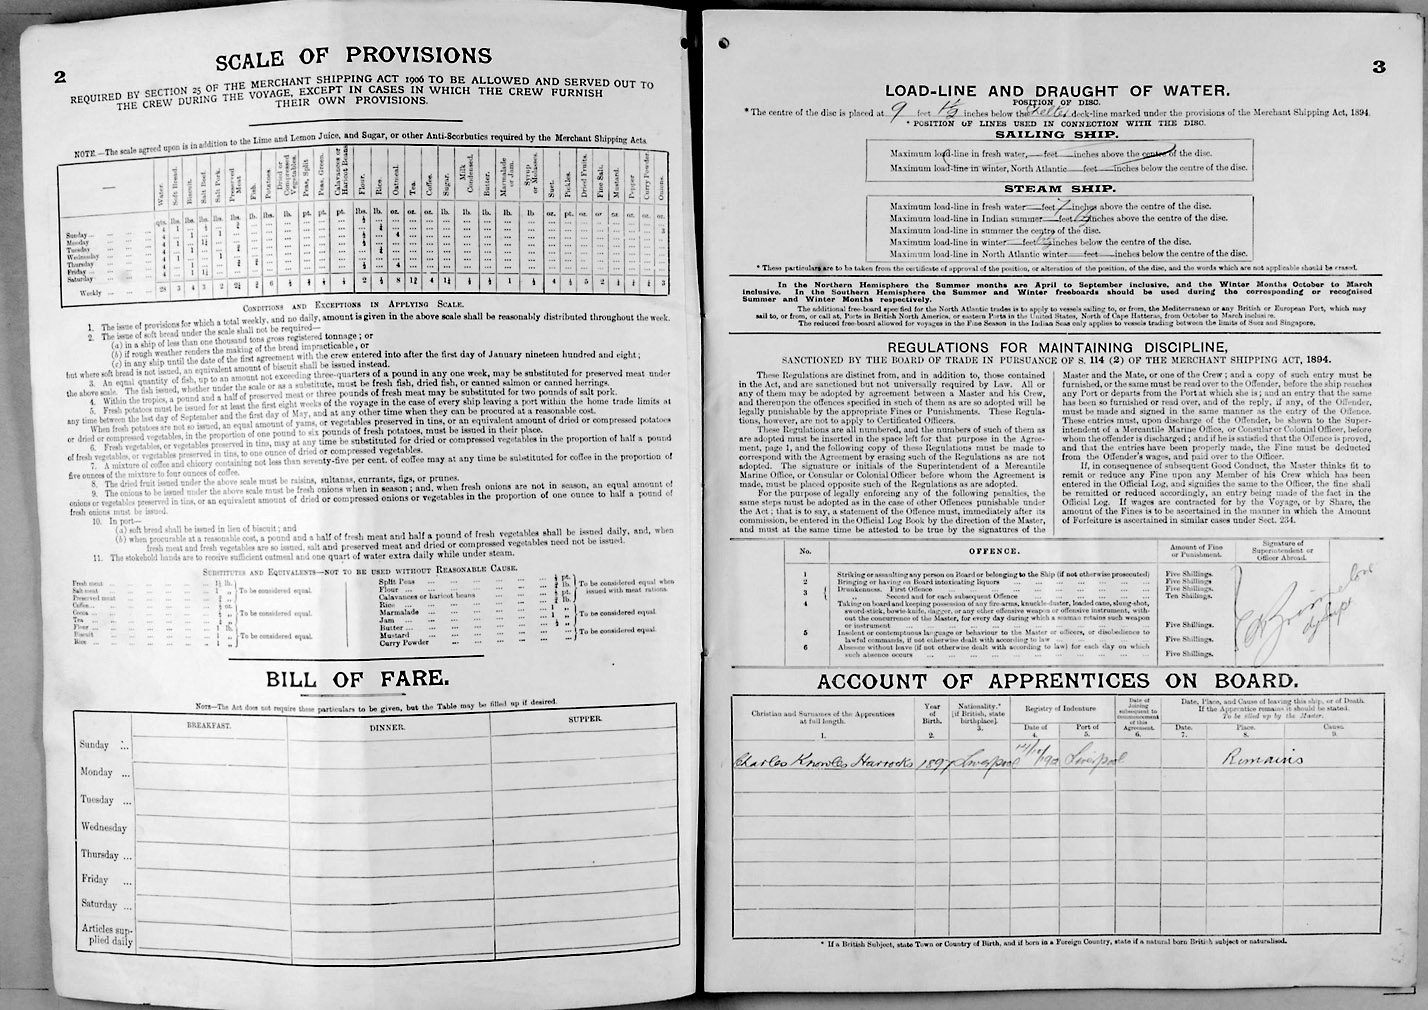 2
SCALE OF PROVISIONS
REQUIRED BY SECTION 25 OF THE MERCHANT SHIPPING ACT 1906 TO BE ALLOWED AND SERVED OUT TO
THE CREW DURING THE VOYAGE, EXCEPT IN CASES IN WHICH THE CREW FURNISH
THEIR OWN PROVISIONS.
NOTE.—The scale agreed upon is in addition to the Lime and Lemon Juice, and Sugar, or other Anti-Scorbutics required by the Merchant Shipping Acts
Water. Soft Bread. Biscuit. Salt Beef. Salt Pork. Preserved Meat Fish. Potatoes Dried or Compressed Vegetables. Peas, Split Peas, Green. Calavances or Haricot Beans Flour. Rice. Oatmeal. Tea. Coffee. Sugar. Milk Condensed. Butter. Marmalade or Jam. Syrup or Molasses. Suet. Pickles. Dried Fruits. Fine Salt. Mustard. Pepper Curry Powder Onions.
qts. lbs. lbs. lbs. lbs. lbs. lb. lbs. lb. pt. pt. pt. lbs. lb. oz. oz. oz. lb. lb. lb. lb. lb oz. pt. oz. oz oz. oz. oz. oz.
Sunday
Monday
Tuesday
Wednesday
Thursday
Friday
Saturday
Weekly
CONDITIONS AND EXCEPTIONS IN APPLYING SCALE.
1. The issue of provisions for which a total weekly, and no daily, amount is given in the above scale shall be reasonably distributed throughout the week.
2. The issue of soft bread under the scale shall not be required—
(a) in a ship of less than one thousand tons gross registered tonnage; or
(b) if rough weather renders the making of the bread impracticable, or
(c) in any ship until the date of the first agreement with the crew entered into after the first day of January nineteen hundred and eight;
but where soft bread is not issued, an equivalent amount of biscuit shall be issued instead.
3. An equal quantity of fish, up to an amount not exceeding three-quarters of a pound in any one week, may be substituted for preserved meat under
the above scale. The fish issued, whether under the scale or as a substitute, must be fresh fish, dried fish, or canned salmon or canned herrings.
4. Within the tropics, a pound and a half of preserved meat or three pounds of fresh meat may be substituted for two pounds of salt pork.
5. Fresh potatoes must be issued for at least the first eight weeks of the voyage in the case of every ship leaving a port within the home trade limits at
any time between the last day of September and the first day of May, and at any other time when they can be procured at a reasonable cost.
When fresh potatoes are not so issued, an equal amount of yams, or vegetables preserved in tins, or an equivalent amount of dried or compressed potatoes
or dried or compressed vegetables, in the proportion of one pound to six pounds of fresh potatoes, must be issued in their place.
6. Fresh vegetables, or vegetables preserved in tins, may at any time be substituted for dried or compressed vegetables in the proportion of half a pound
of fresh vegetables, or vegetables preserved in tins, to one ounce of dried or compressed vegetables.
7. A mixture of coffee and chicory containing not less than seventy-five per cent. of coffee may at any time be substituted for coffee in the proportion of
five ounces of the mixture to four ounces of coffee.
8. The dried fruit issued under the above scale must be raisins, sultanas, currants, figs, or prunes.
9. The onions to be issued under the above scale must be fresh onions when in season; and, when fresh onions are not in season, an equal amount of
onions or vegetables preserved in tins, or an equivalent amount of dried or compressed onions or vegetables in the proportion of one ounce to half a pound of
fresh onions must be issued.
10. In port—
(a) soft bread shall be issued in lieu of biscuit; and
(b) when procurable at a reasonable cost, a pound and a half of fresh meat and half a pound of fresh vegetables shall be issued daily, and, when
fresh meat and fresh vegetables are so issued, salt and preserved meat and dried or compressed vegetables need not be issued.
11. The stokehold hands are to receive sufficient oatmeal and one quart of water extra daily while under steam.
SUBSTITUTES AND EQUIVALENTS—NOT TO BE USED WITHOUT REASONABLE CAUSE.
Fresh meat
Salt meat
Preserved meat
To be considered equal.
Coffee
Cocoa
Tea
To be considered equal.
Flour
Biscuit
Rice
To be considered equal.
Split Peas
Flour
Calavances or haricot beans
Rice
To be considered equal when
issued with meat rations.
Marmalade
Jam
Butter
To be considered equal.
Mustard
Curry Powder
To be considered equal.
BILL OF FARE.
NOTE—The Act does not require these particulars to be given, but the Table may be filled up if desired.
BREAKFAST. DINNER. SUPPER.
Sunday
Monday
Tuesday
Wednesday
Thursday
Friday
Saturday
Articles sup-
plied daily
3
LOAD-LINE AND DRAUGHT OF WATER.
POSITION OF DISC.
* The centre of the disc is placed at 9 feet 1½ inches below the Shelter deck-line marked under the provisions of the Merchant Shipping Act, 1894.
* POSITION OF LINES USED IN CONNECTION WITH THE DISC.
SAILING SHIP.
Maximum load-line in fresh water, feet inches above the centre of the disc.
Maximum load-line in winter, North Atlantic feet inches below the centre of the disc.
STEAM SHIP.
Maximum load-line in fresh water feet 7 inches above the centre of the disc.
Maximum load-line in Indian summer feet inches above the centre of the disc.
Maximum load-line in summer the centre of the disc.
Maximum load-line in winter feet inches below the centre of the disc.
Maximum load-line in North Atlantic winter feet inches below the centre of the disc.
* These particulars are to be taken from the certificate of approval of the position, or alteration of the position, of the disc, and the words which are not applicable should be erased.
In the Northern Hemisphere the Summer months are April to September inclusive, and the Winter Months October to March
inclusive. In the Southern Hemisphere the Summer and Winter freeboards should be used during the corresponding or recognised
Summer and Winter Months respectively.
The additional free-board specified for the North Atlantic trades is to apply to vessels sailing to, or from, the Mediterranean or any British or European Port, which may
sail to, or from, or call at, Ports in British North America, or eastern Ports in the United States, North of Cape Hatteras, from October to March inclusive.
The reduced free-board allowed for voyages in the Fine Season in the Indian Seas only applies to vessels trading between the limits of Suez and Singapore.
REGULATIONS FOR MAINTAINING DISCIPLINE,
SANCTIONED BY THE BOARD OF TRADE IN PURSUANCE OF S. 114 (2) OF THE MERCHANT SHIPPING ACT, 1894.
These Regulations are distinct from, and in addition to, those contained
in the Act, and are sanctioned but not universally required by Law. All or
any of them may be adopted by agreement between a Master and his Crew,
and thereupon the offences specified in such of them as are so adopted will be
legally punishable by the appropriate Fines or Punishments. These Regula-
tions, however, are not to apply to Certificated Officers.
These Regulations are all numbered, and the numbers of such of them as
are adopted must be inserted in the space left for that purpose in the Agree-
ment, page 1, and the following copy of these Regulations must be made to
correspond with the Agreement by erasing such of the Regulations as are not
adopted. The signature or initials of the Superintendent of a Mercantile
Marine Office, or Consular or Colonial Officer before whom the Agreement is
made, must be placed opposite such of the Regulations as are adopted.
For the purpose of legally enforcing any of the following penalties, the
same steps must be adopted as in the case of other Offences punishable under
the Act; that is to say, a statement of the Offence must, immediately after its
commission, be entered in the Official Log Book by the direction of the Master,
and must at the same time be attested to be true by the signatures of the
Master and the Mate, or one of the Crew; and a copy of such entry must be
furnished, or the same must be read over to the Offender, before the ship reaches
any Port or departs from the Port at which she is; and an entry that the same
has been so furnished or read over, and of the reply, if any, of the Offender,
must be made and signed in the same manner as the entry of the Offence.
These entries must, upon discharge of the Offender, be shewn to the Super-
intendent of a Mercantile Marine Office, or Consular or Colonial Officer, before
whom the offender is discharged; and if he is satisfied that the Offence is proved,
and that the entries have been properly made, the Fine must be deducted
from the Offender's wages, and paid over to the Officer.
If, in consequence of subsequent Good Conduct, the Master thinks fit to
remit or reduce any Fine upon any Member of his Crew which has been
entered in the Official Log, and signifies the same to the Officer, the fine shall
be remitted or reduced accordingly, an entry being made of the fact in the
Official Log. If wages are contracted for by the Voyage, or by Share, the
amount of the Fines is to be ascertained in the manner in which the Amount
of Forfeiture is ascertained in similar cases under Sect. 234.
No. OFFENCE. Amount of Fine or Punishment. Signature of Superintendent or Officer Abroad.
1 Striking or assaulting any person on Board or belonging to the Ship (if not otherwise prosecuted) Five Shillings.
2 Bringing or having on Board intoxicating liquors Five Shillings.
3 Drunkenness. First Offence Five Shillings.
Second and for each subsequent Offence Ten Shillings.
4 Taking on board and keeping possession of any fire-arms, knuckle-duster, loaded cane, slung-shot,
sword-stick, bowie-knife, dagger, or any other offensive weapon or offensive instrument, with-
out the concurrence of the Master, for every day during which a seaman retains such weapon
or instrument Five Shillings.
5 Insolent or contemptuous language or behaviour to the Master or officers, or disobedience to
lawful commands, if not otherwise dealt with according to law Five Shillings.
6 Absence without leave (if not otherwise dealt with according to law) for each day on which
such absence occurs Five Shillings.
ACCOUNT OF APPRENTICES ON BOARD.
Christian and Surnames of the Apprentices at full length. Year of Birth. Nationality.* [if British, state birthplace]. Registry of Indenture Date of Port of Date of Joining subsequent to commencement of this Agreement. Date, Place, and Cause of leaving this ship, or of Death. If the Apprentice remains it should be stated. To be filled up by the Master. Date. Place. Cause.
1. 2. 3. 4. 5. 6. 7. 8. 9.
Charles Knowles Harrocks 1897 Liverpool Liverpool Remains
* If a British Subject, state Town or Country of Birth, and if born in a Foreign Country, state if a natural born British subject or naturalised.